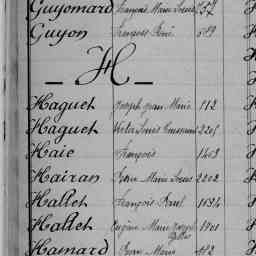 Guyomard François Marie Louis 757
Guyon François René 589
— H —
Haguet Joseph Jean Marie 112
Haguet Victor Louis Toussaint 2205
Haie François 1403
Hairan Jean Marie Louis 2202
Hallet François Paul 1194
Hallet Eugène Marie Joseph 1701
Hamard Jean Marie 112